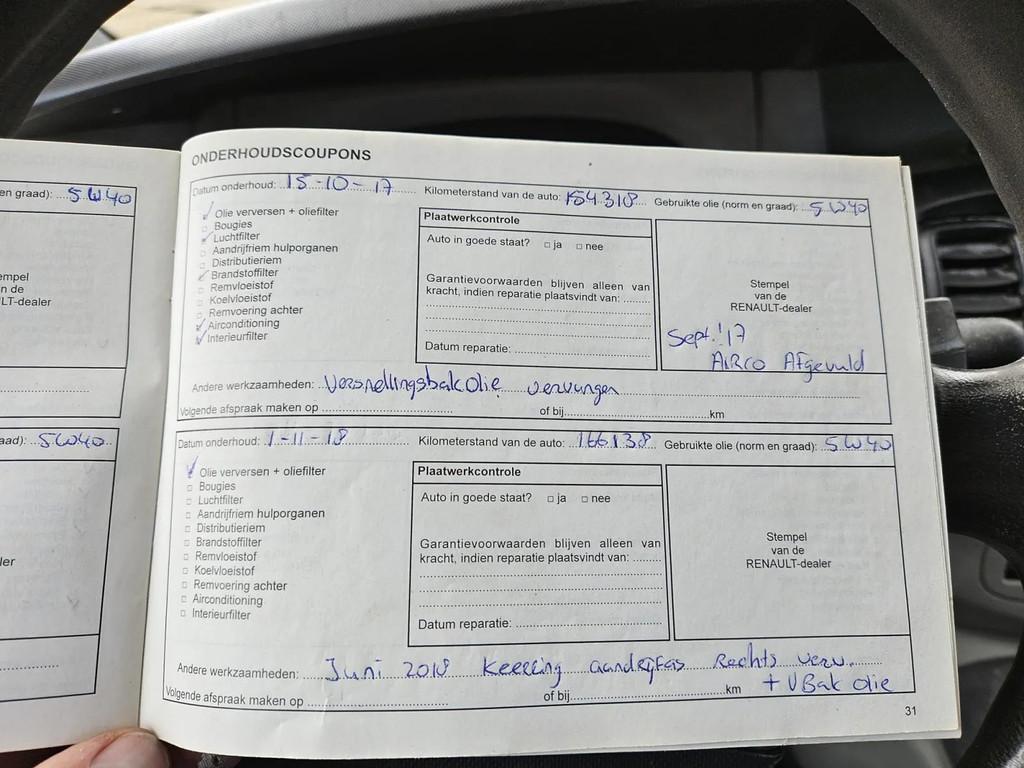 ONDERHOUDSCOUPONS
en graad): 5W40
Datum onderhoud: 15-10-17 Kilometerstand van de auto: 154.318 Gebruikte olie (norm en graad): 5W40
Olie verversen + oliefilter
Bougies
Luchtfilter
Aandrijfriem hulporganen
Distributieriem
Brandstoffilter
Remvloeistof
Koelvloeistof
Remvoering achter
Airconditioning
Interieurfilter
Plaatwerkcontrole
Auto in goede staat? ja nee
Garantievoorwaarden blijven alleen van
kracht, indien reparatie plaatsvindt van:
Datum reparatie:
Stempel
van de
RENAULT-dealer
Sept. '17
AIRCO Afgevuld
empel
n de
LT-dealer
Andere werkzaamheden: Versnellingsbakolie vervangen
Volgende afspraak maken op of bij km
aad): 5W40
Datum onderhoud: 1-11-18 Kilometerstand van de auto: 166.138 Gebruikte olie (norm en graad): 5W40
Olie verversen + oliefilter
Bougies
Luchtfilter
Aandrijfriem hulporganen
Distributieriem
Brandstoffilter
Remvloeistof
Koelvloeistof
Remvoering achter
Airconditioning
Interieurfilter
Plaatwerkcontrole
Auto in goede staat? ja nee
Garantievoorwaarden blijven alleen van
kracht, indien reparatie plaatsvindt van:
Datum reparatie:
Stempel
van de
RENAULT-dealer
ler
Andere werkzaamheden: Juni 2018 Keerring aandrijfas Rechts verv.
+ VBak olie
Volgende afspraak maken op of bij km
31